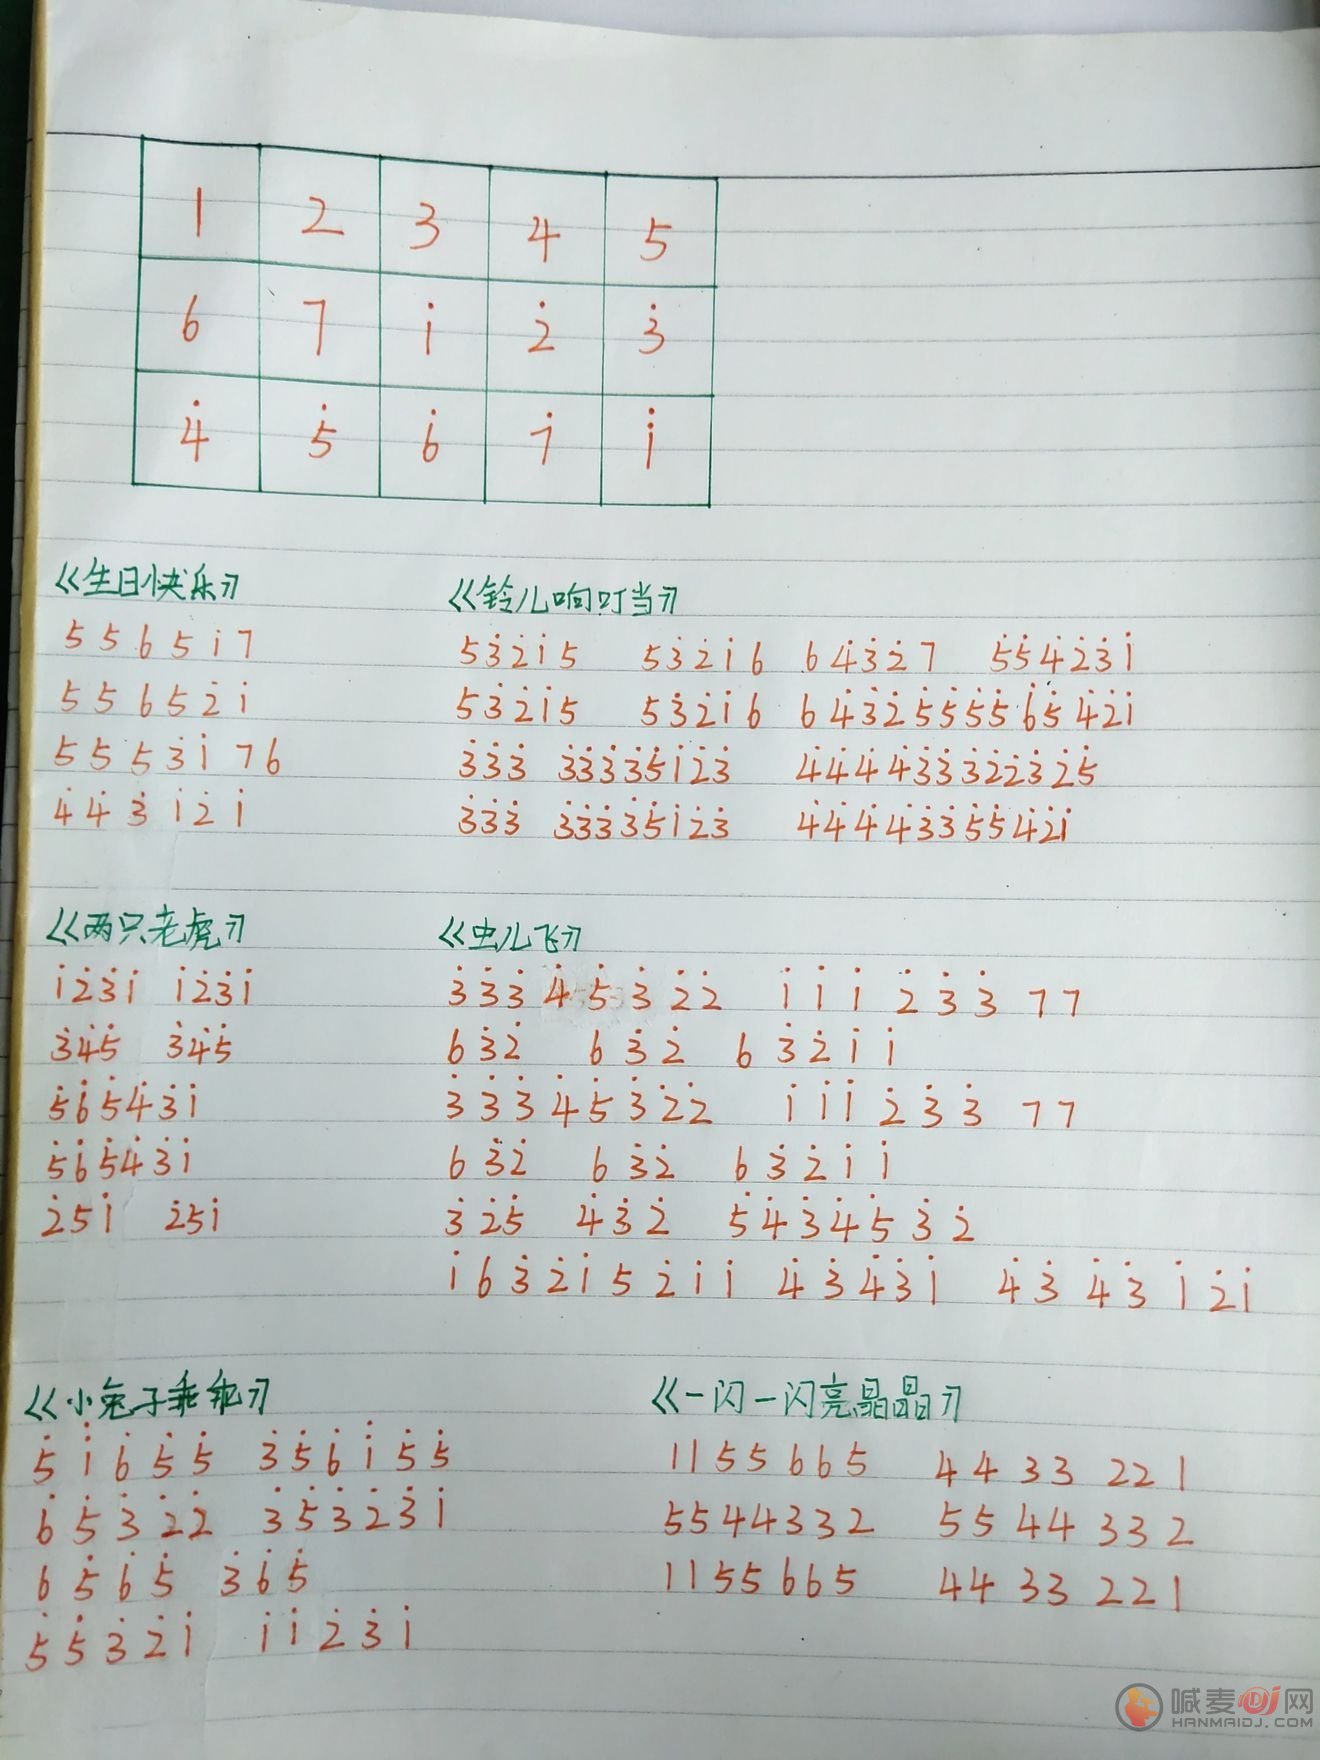 1 2 3 4 5
6 7 1̇ 2̇ 3̇
4̇ 5̇ 6̇ 7̇ 1̈
《生日快乐》
5 5 6 5 1̇ 7
5 5 6 5 2̇ 1̇
5 5 5̇ 3̇ 1̇ 7 6
4̇ 4̇ 3̇ 1̇ 2̇ 1̇
《铃儿响叮当》
5 3̇ 2̇ 1̇ 5 5 3̇ 2̇ 1̇ 6 6 4̇ 3̇ 2̇ 7 5̇ 5̇ 4̇ 2̇ 3̇ 1̇
5 3̇ 2̇ 1̇ 5 5 3̇ 2̇ 1̇ 6 6 4̇ 3̇ 2̇ 5̇ 5̇ 5̇ 5̇ 6̇ 5̇ 4̇ 2̇ 1̇
3̇ 3̇ 3̇ 3̇ 3̇ 3̇ 3̇ 5̇ 1̇ 2̇ 3̇ 4̇ 4̇ 4̇ 4̇ 3̇ 3̇ 3̇ 2̇ 2̇ 3̇ 2̇ 5̇
3̇ 3̇ 3̇ 3̇ 3̇ 3̇ 3̇ 5̇ 1̇ 2̇ 3̇ 4̇ 4̇ 4̇ 4̇ 3̇ 3̇ 5̇ 5̇ 4̇ 2̇ 1̇
《两只老虎》
1̇ 2̇ 3̇ 1̇ 1̇ 2̇ 3̇ 1̇
3̇ 4̇ 5̇ 3̇ 4̇ 5̇
5̇ 6̇ 5̇ 4̇ 3̇ 1̇
5̇ 6̇ 5̇ 4̇ 3̇ 1̇
2̇ 5 1̇ 2̇ 5 1̇
《虫儿飞》
3̇ 3̇ 3̇ 4̇ 5̇ 3̇ 2̇ 2̇ 1̇ 1̇ 1̇ 2̇ 3̇ 3̇ 7 7
6 3̇ 2̇ 6 3̇ 2̇ 6 3̇ 2̇ 1̇ 1̇
3̇ 3̇ 3̇ 4̇ 5̇ 3̇ 2̇ 2̇ 1̇ 1̇ 1̇ 2̇ 3̇ 3̇ 7 7
6 3̇ 2̇ 6 3̇ 2̇ 6 3̇ 2̇ 1̇ 1̇
3̇ 2̇ 5̇ 4̇ 3̇ 2̇ 5̇ 4̇ 3̇ 4̇ 5̇ 3̇ 2̇
1̇ 6 3̇ 2̇ 1̇ 5 2̇ 1̇ 1̇ 4̇ 3̇ 4̇ 3̇ 1̇ 4̇ 3̇ 4̇ 3̇ 1̇ 2̇ 1̇
《小兔子乖乖》
5̇ 1̈ 6̇ 5̇ 5̇ 3̇ 5̇ 6̇ 1̇ 5̇ 5̇
6̇ 5̇ 3̇ 2̇ 2̇ 3̇ 5̇ 3̇ 2̇ 3̇ 1̇
6 5̇ 6̇ 5̇ 3̇ 6̇ 5̇
5̇ 5̇ 3̇ 2̇ 1̇ 1̇ 1̇ 2̇ 3̇ 1̇
《一闪一闪亮晶晶》
1 1 5 5 6 6 5 4 4 3 3 2 2 1
5 5 4 4 3 3 2 5 5 4 4 3 3 2
1 1 5 5 6 6 5 4 4 3 3 2 2 1
喊麦DJ网
HANMAIDJ.COM